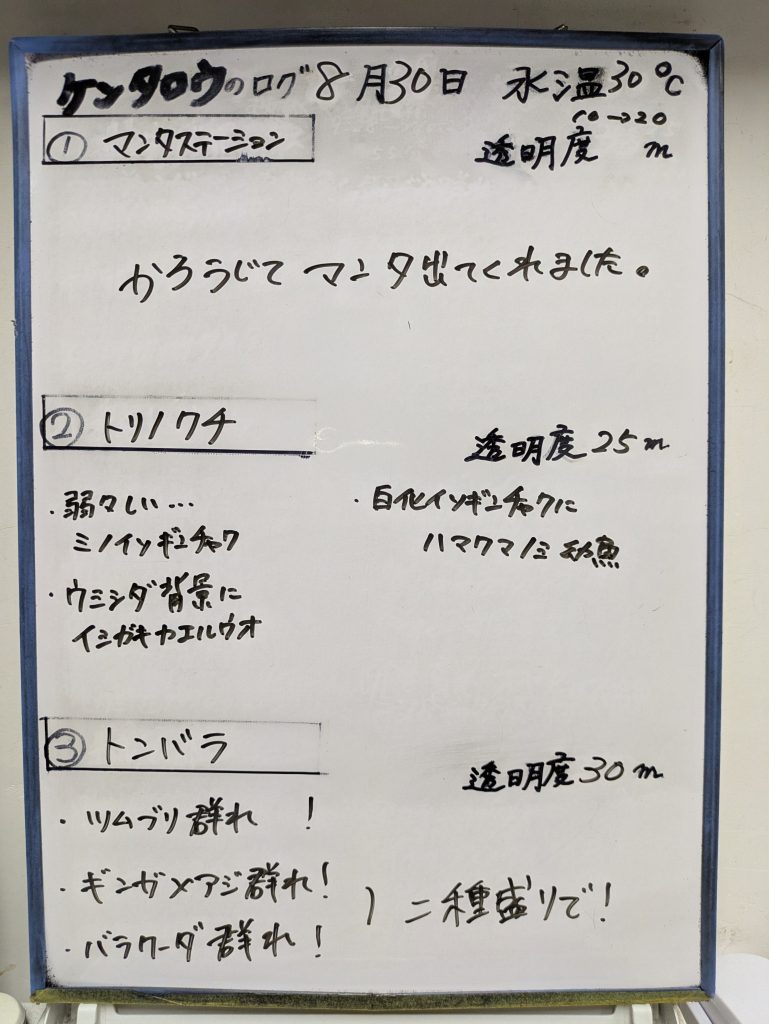 ケンタロウのログ 8月30日 水温30℃
① マンタステーション
10→20
透明度 m
かろうじて マンタ出てくれました。
② トリノクチ
透明度25m
・弱々しい…
ミノイソギンチャク
・ウミシダ背景に
イシガキカエルウオ
・白化イソギンチャクに
ハマクマノミ幼魚
③ トンバラ
透明度30m
・ツムブリ群れ !
・ギンガメアジ群れ!
・バラクーダ群れ!
) 二種盛りで!